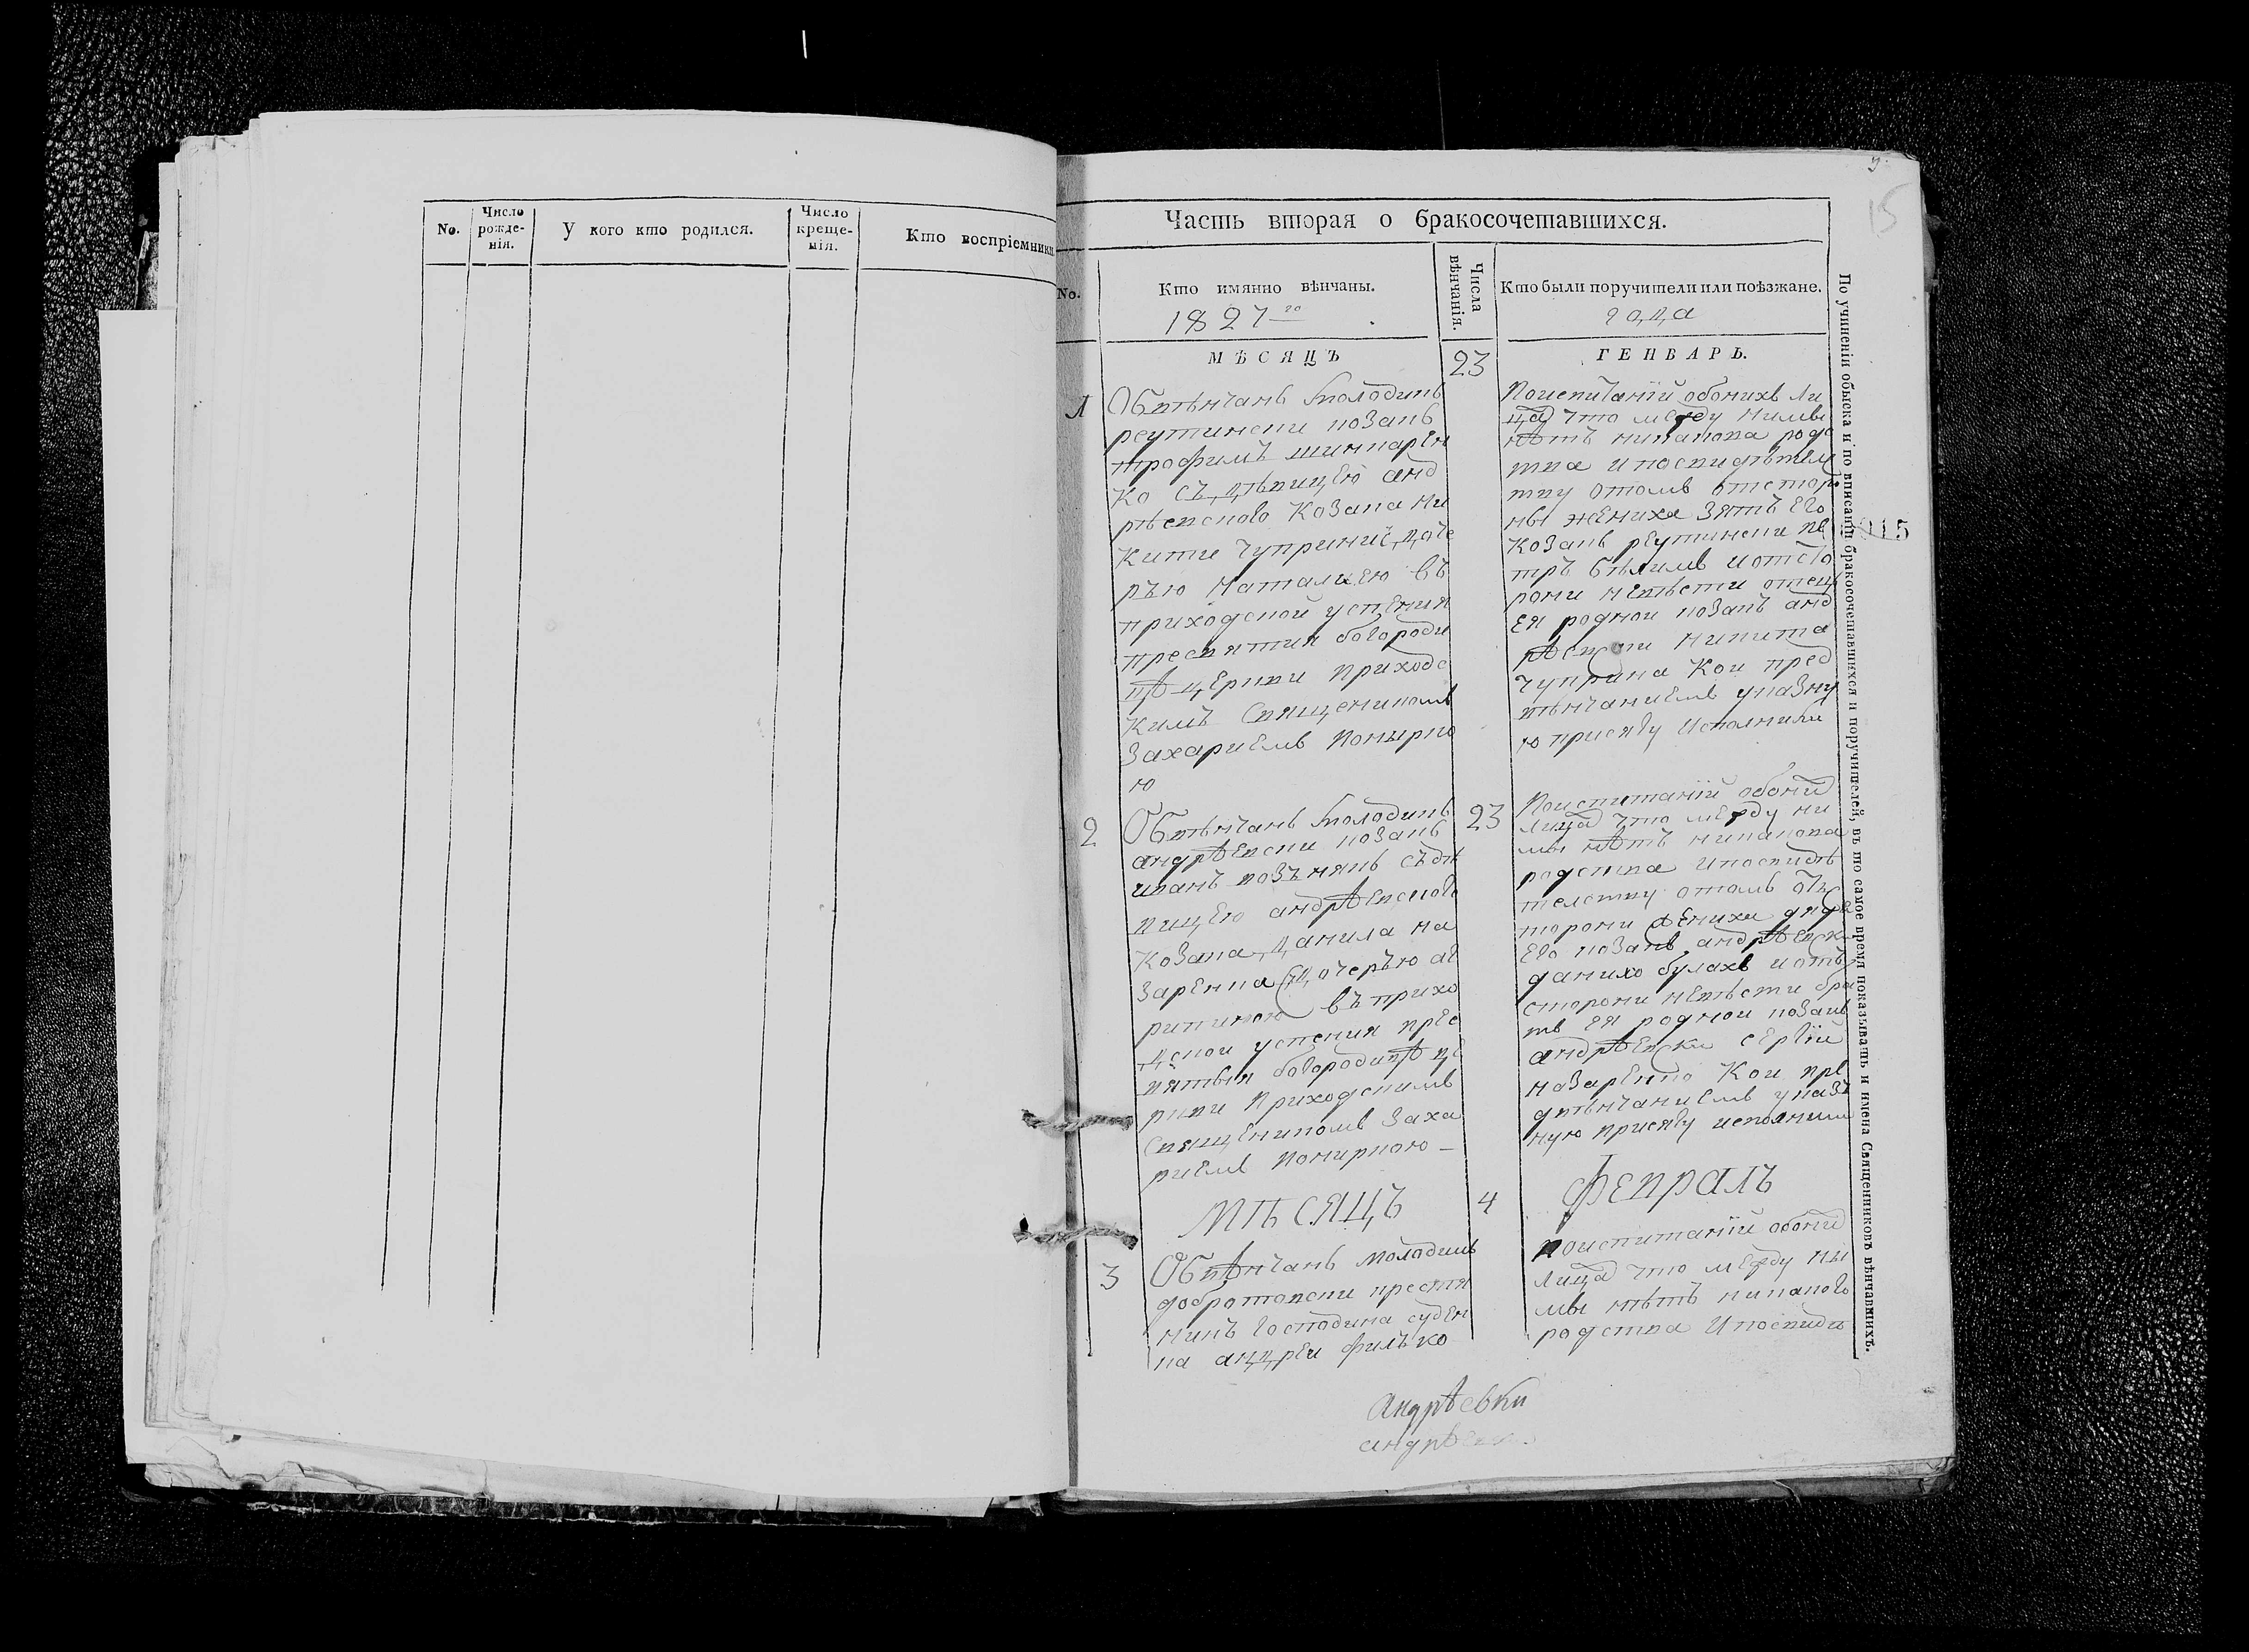 No.
Число рожде-нія.
У кого кто родился.
Число креще-нія.
Кто воспріемники
15
Часть вторая о бракосочетавшихся.
No.
Кто имянно вѣнчаны.
Числа вѣнчанія.
Кто были поручители или поѣзжане.
1827го
года
МѢСЯЦЪ
23
ГЕНВАРЬ.
1
Обвѣнчанъ молодикъ
реутински козакъ
трофимъ шинкарен
ко съ дѣвицею анд
рѣевского козака ни
кити чуприни доче
рью Наталиею въ
приходской успения
пресвятия богороди
цѣ церкви приходс
кимъ священикомъ
Захариемъ Понирко
ю
Поиспитаній обоихъ ли
ца что между ними
нѣтъ никакова родс
тва и посвидѣтелс
тву отомъ отсторо
ны жениха зять его
козакъ реутински пе
тръ билимъ иотсто
рони невѣсти отецъ
ея родной козакъ анд
рѣевски никита
чуприна кои пред
вѣнчаниемъ указну
ю присягу исполнили
2
Обвѣнчанъ молодикъ
андрѣевски козакъ
иванъ возънякъ съ дѣ
вицею андрѣевского
козака данила на
заренка дочерью аг
рипиною въ прихо
дской успения прес
вятыя богородицѣ це
ркви приходскимъ
священикомъ Заха
риемъ Пониркою
23
Поиспитаній обоих
лица что между ни
ми нѣтъ никакова
родства и посвидѣ
телству отомъ отъ
торони жениха дядя
его козакъ андрѣевски
данило булахъ иотъ
сторони невѣсти бра
тъ ея родной козакъ
андрѣевски сергій
назаренко кои пре
двѣнчаниемъ указъ
ную присягу исполнили
МѢСЯЦЪ
4
Февраль
3
Обвѣнчанъ молодикъ
добротовски крестя
нинъ господина суден
ка андреи филько
Поиспитаній обоих
лица что между ни
ми нѣтъ никакого
родства и посвидѣ
Андрѣевки
По учиненіи обыска и по вписаніи бракосочетавшихся и поручителей, въ то самое время показывать и имена Священниковъ вѣнчавшихъ.